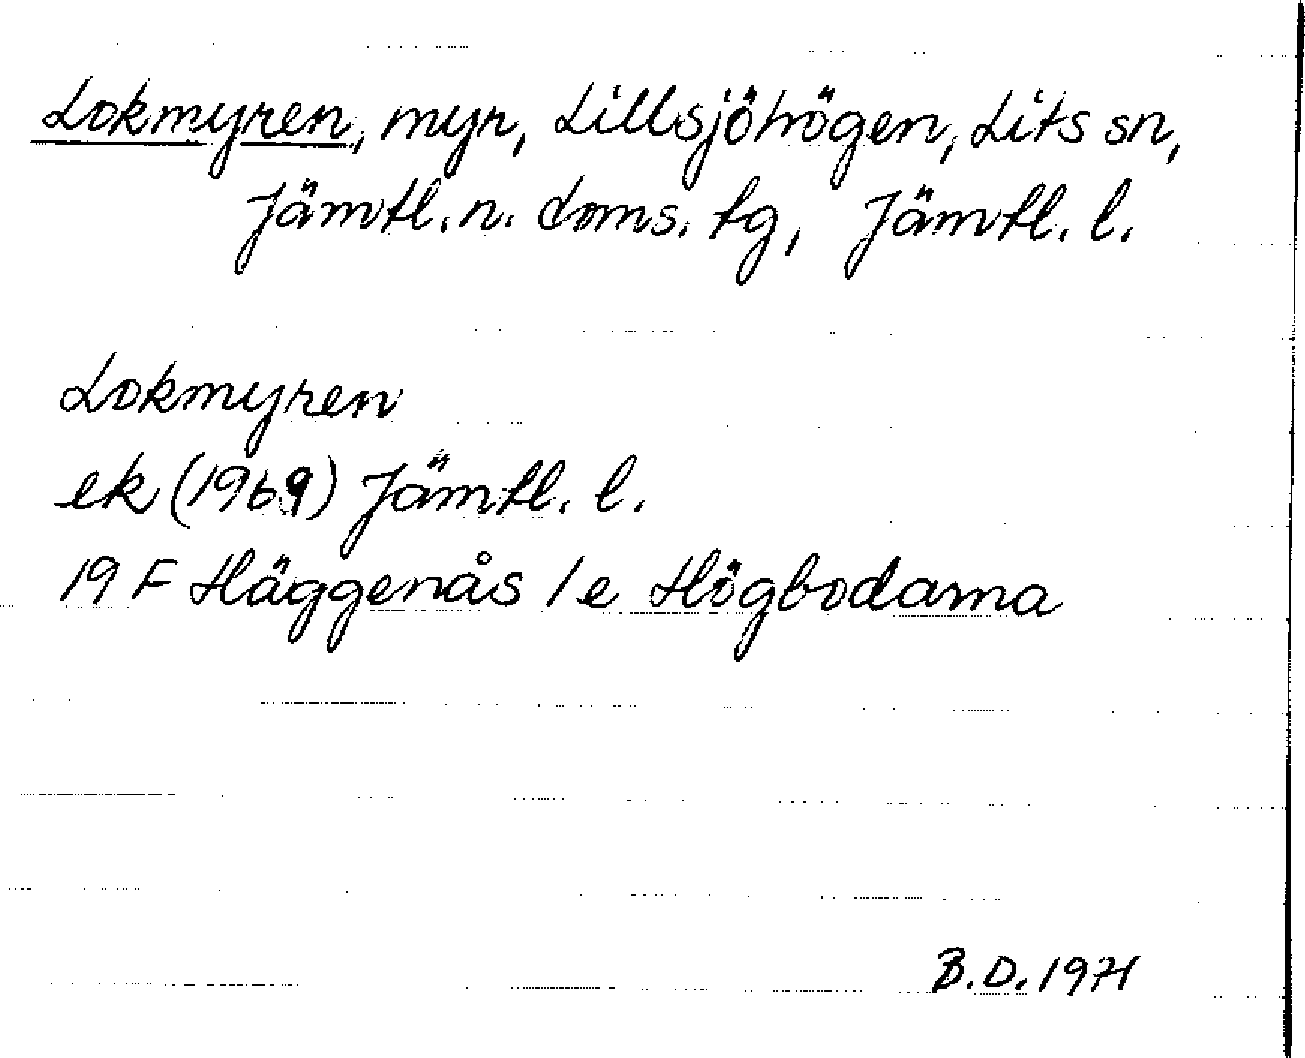 Lokmyren, myr, Lillsjöhögen, Lits sn,
Jämtl. n. doms. tg, Jämtl. l.
Lokmyren
ek (1969) Jämtl. l.
19 F Häggenås 1e Högbodarna
B.D. 1971